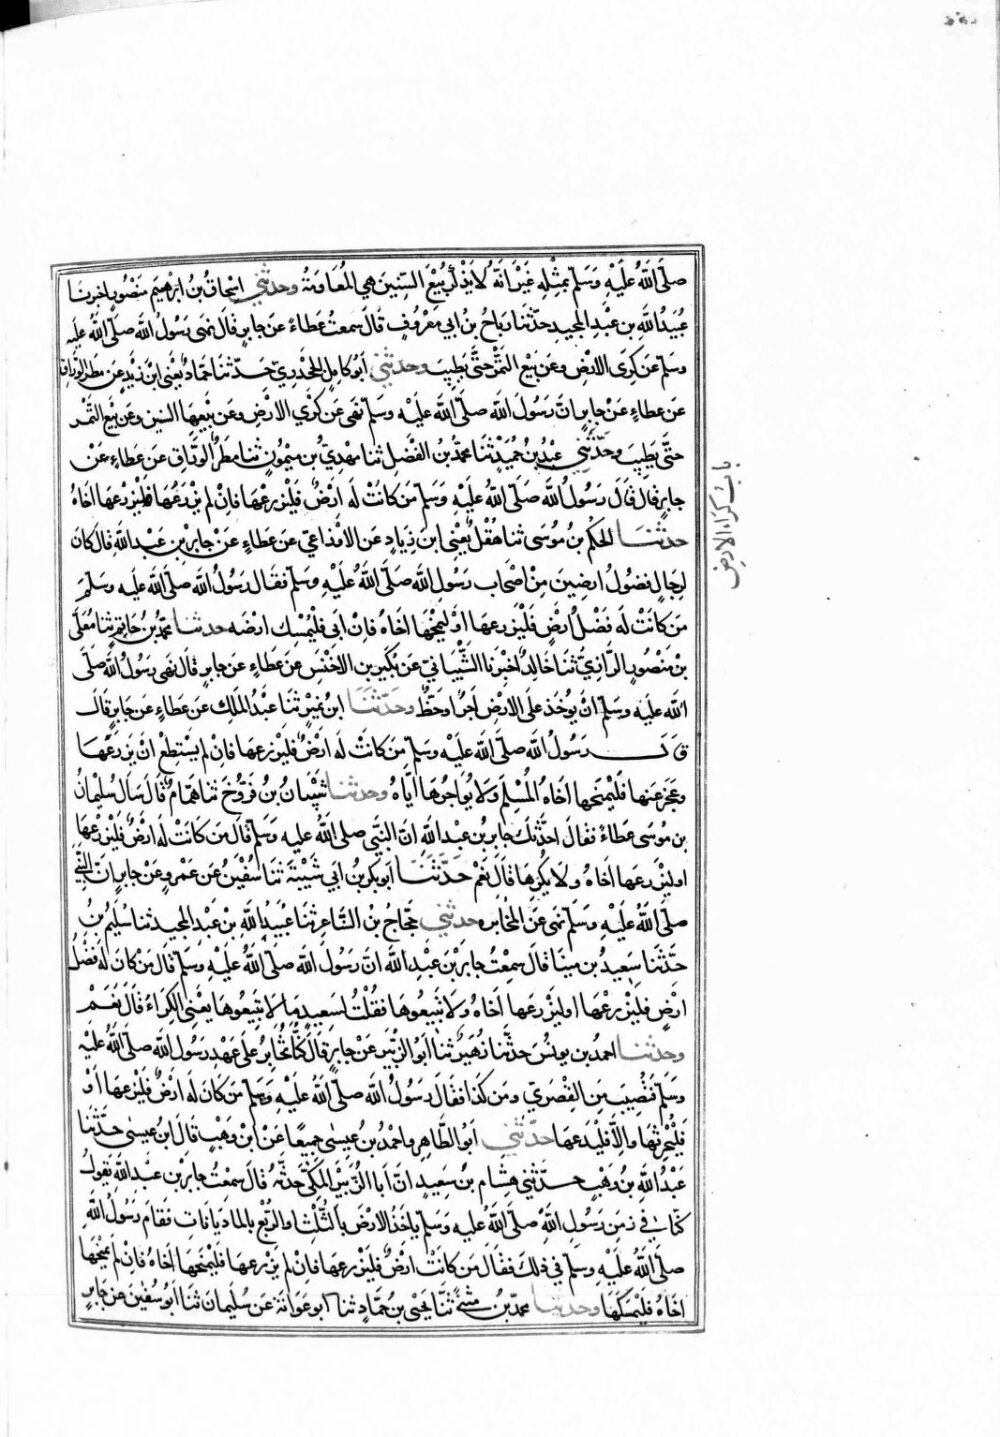 صلى الله عليه وسلم بمثله غير انه لا يذكر بيع السنين هي المعاومة وحدثني اسحاق بن ابرهيم منصور اخبرنا
عبيد الله بن عبد المجيد حدثنا رباح بن ابي معروف قال سمعت عطاء عن جابر قال نهى رسول الله صلى الله عليه
وسلم عن كرى الارض وعن بيع الثمر حتى يطيب وحدثني ابو كامل الجحدري حدثنا حماد يعني ابن زيد عن مطر الوراق
عن عطاء عن جابر ان رسول الله صلى الله عليه وسلم نهى عن كري الارض وعن بيعها السنين وعن بيع الثمر
حتى يطيب وحدثني عبد بن حميد ثنا محمد بن الفضل ثنا مهدي بن ميمون ثنا مطر الوراق عن عطاء عن
جابر قال قال رسول الله صلى الله عليه وسلم من كانت له ارض فليزرعها فان لم يزرعها فليزرعها اخاه
حدثنا الحكم بن موسى ثنا هقل يعني ابن زياد عن الاوزاعي عن عطاء عن جابر بن عبد الله قال كان
لرجال فضول ارضين من اصحاب رسول الله صلى الله عليه وسلم فقال رسول الله صلى الله عليه وسلم
من كانت له فضل ارض فليزرعها او ليمنحها اخاه فان ابى فليمسك ارضه حدثنا محمد بن حاتم ثنا معلى
بن منصور الرازي ثنا خالد اخبرنا الشيباني عن بكير بن الاخنس عن عطاء عن جابر قال نهى رسول الله صلى
الله عليه وسلم ان يؤخذ على الارض اجر او حظ وحدثنا ابن نمير ثنا عبد الملك عن عطاء عن جابر قال
قال رسول الله صلى الله عليه وسلم من كانت له ارض فليزرعها فان لم يستطع ان يزرعها
وعجز عنها فليمنحها اخاه المسلم ولا يؤاجرها اياه وحدثنا شيبان بن فروخ ثنا همام قال سال سليمان
بن موسى عطاء فقال احدثك جابر بن عبد الله ان النبي صلى الله عليه وسلم قال من كانت له ارض فليزرعها
او ليزرعها اخاه ولا يكرها قال نعم حدثنا ابو بكر بن ابي شيبة ثنا سفين عن عمرو عن جابر ان النبي
صلى الله عليه وسلم نهى عن المخابره وحدثني حجاج بن الشاعر ثنا عبيد الله بن عبد المجيد ثنا سليم بن
حدثنا سعيد بن مينا قال سمعت جابر بن عبد الله ان رسول الله صلى الله عليه وسلم قال من كان له فضل
ارض فليزرعها او ليزرعها اخاه ولا تبيعوها فقلت لسعيد ما لا تبيعوها يعني الكراء قال نعم
وحدثنا احمد بن يونس حدثنا زهير ثنا ابو الزبير عن جابر قال كنا نخابر على عهد رسول الله صلى الله عليه
وسلم فنصيب من القصري ومن كذا فقال رسول الله صلى الله عليه وسلم من كان له ارض فليزرعها او
فليحرثها والا فليدعها حدثني ابو الطاهر واحمد بن عيسى جميعا عن ابن وهب قال ابن عيسى حدثنا
عبد الله بن وهب حدثني هشام بن سعيد ان ابا الزبير المكي حدثه قال سمعت جابر بن عبد الله يقول
كنا في زمن رسول الله صلى الله عليه وسلم ياخذ الارض بالثلث او الربع بالماذيانات فقام رسول الله
صلى الله عليه وسلم في ذلك فقال من كانت ارض فليزرعها فان لم يزرعها فليمنحها اخاه فان لم يمنحها
اخاه فليمسكها وحدثنا محمد بن مثنى ثنا يحيى بن حماد ثنا ابو عوانة عن سليمان ثنا ابو سفين عن جابر
باب كراء الارض